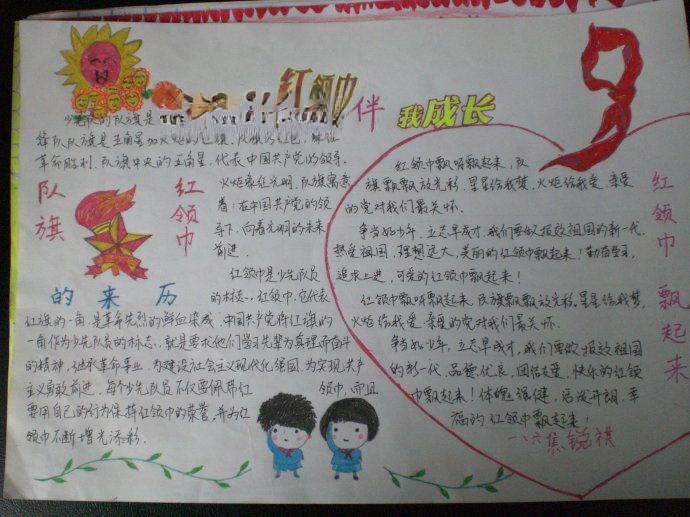 红领巾
伴
我成长
少先队的队旗是
锋队队旗是五角星加火炬的红旗
革命胜利.队旗中央的五角星,代表中国共产党的领导.
火炬象征光明,队旗寓意
着:在中国共产党的领
导下,向着光明的未来
前进.
队旗
红领巾
的来历
红领巾是少先队员
的标志.红领巾,它代表
红旗的一角,是革命先烈的鲜血染成,中国共产党将红旗的
一角作为少先队员的标志,就是要求他们学习先辈为真理而奋斗
的精神,继承革命事业,为建设社会主义现代化强国,为实现共产
主义勇敢前进,每个少先队员不仅要佩带红领巾,而且
要用自己的行为保持红领巾的荣誉,并为红
领巾不断增光添彩.
红领巾飘呀飘起来,队
旗飘飘放光彩,星星给我梦,火炬给我爱,亲爱
的党对我们最关怀.
争当好少年,立志早成才,我们要做报效祖国的新一代.
热爱祖国,理想远大,美丽的红领巾飘起来!勤奋学习,
追求上进,可爱的红领巾飘起来!
红领巾飘呀飘起来,队旗飘飘放光彩,星星给我梦,
火炬给我爱,亲爱的党对我们最关怀.
争当好少年,立志早成才,我们要做报效祖国
的新一代,品德优良,团结友爱,快乐的红领
巾飘起来!体魄强健,活泼开朗,幸
福的红领巾飘起来!
红领巾飘起来
一八六集锐祺